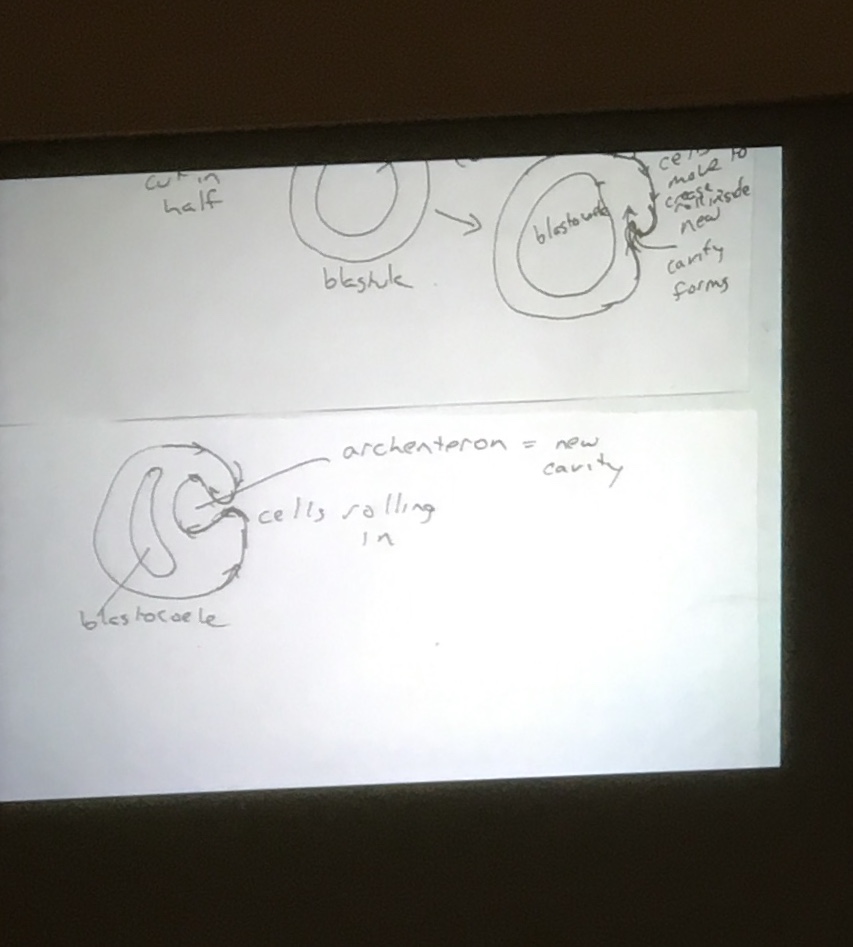 cut in
half
blastula
blastocoele
cells
move to
crease
roll inside
new
cavity
forms
archenteron = new
cavity
cells rolling
in
blastocoele